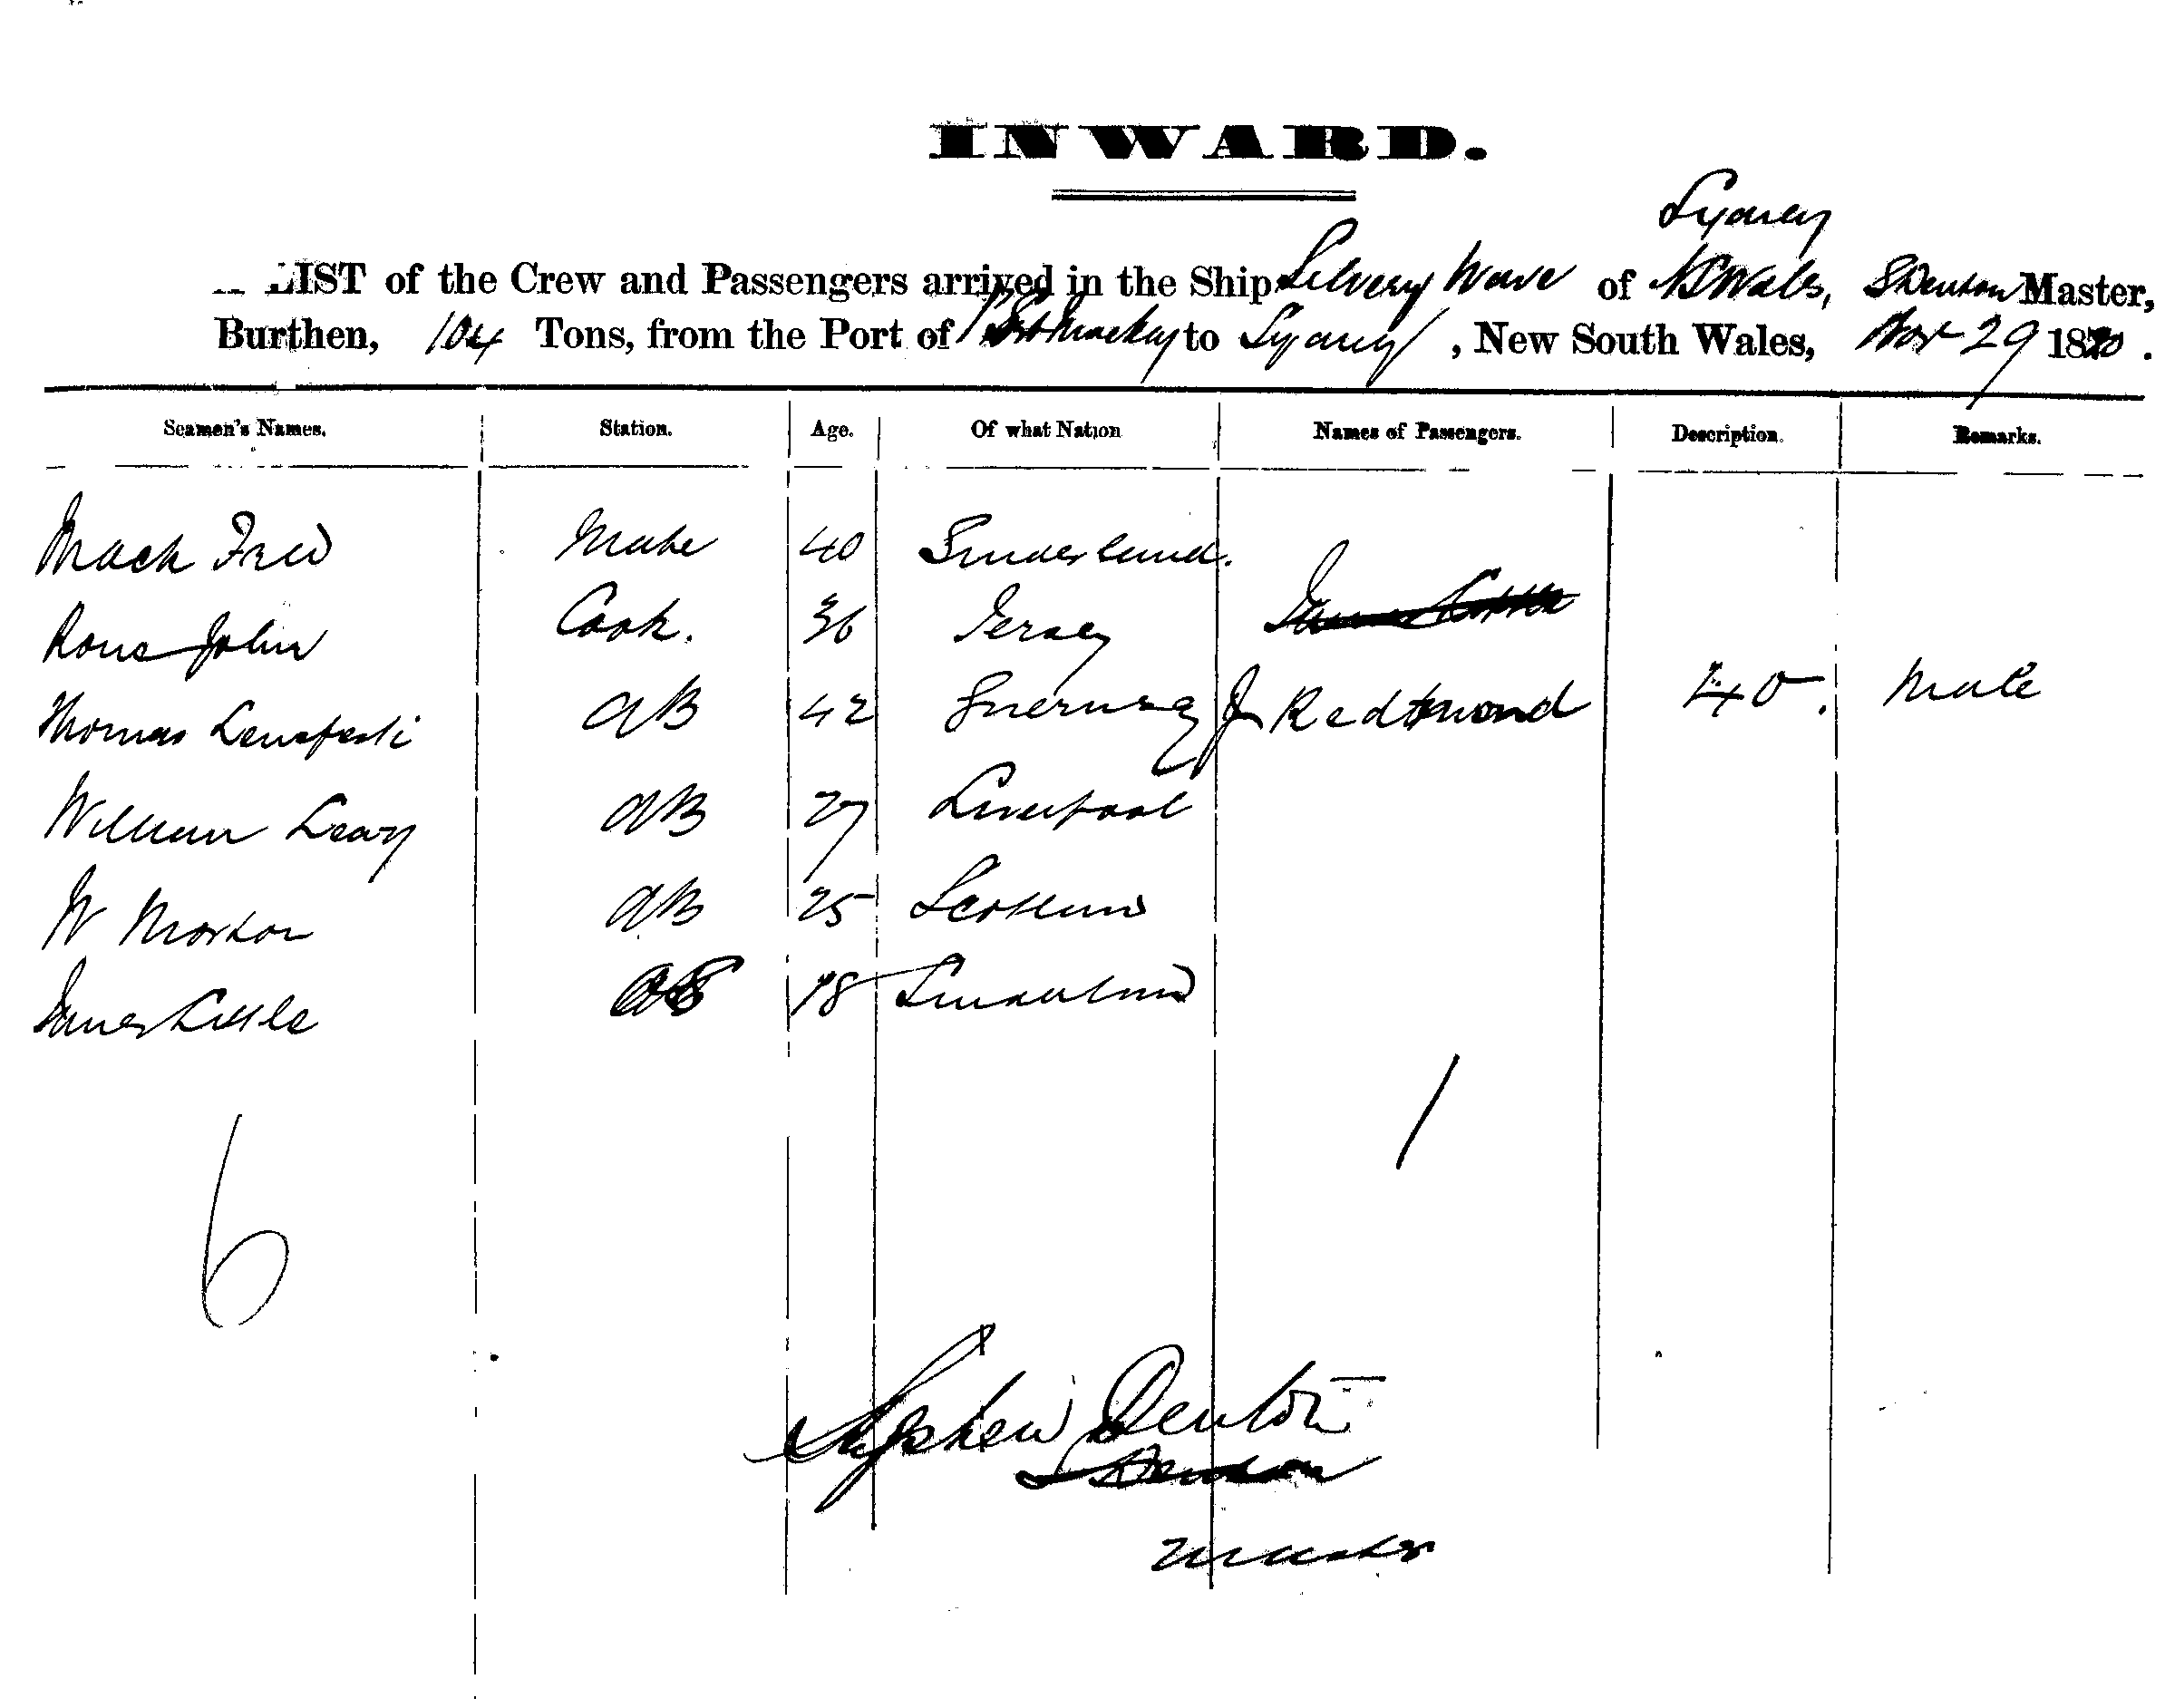 INWARD.
Sydney
LIST of the Crew and Passengers arrived in the Ship Silvery Wave of NSWales, S Denton Master,
Burthen, 104 Tons, from the Port of Port Mackay to Sydney, New South Wales, Nov 29 1870.
Seamen's Names. Station. Age. Of what Nation Names of Passengers. Description. Remarks.
Mack Fred Mate 40 Sunderland.
John Cook. 36 Jersey James Little
Thomas AB 42 Guernsey J Redmond 40. Male
William Leary AB 27 Liverpool
W Morton AB 25 Scotland
James Little 18 Sunderland
6 1
Stephen Denton
S Denton
Master